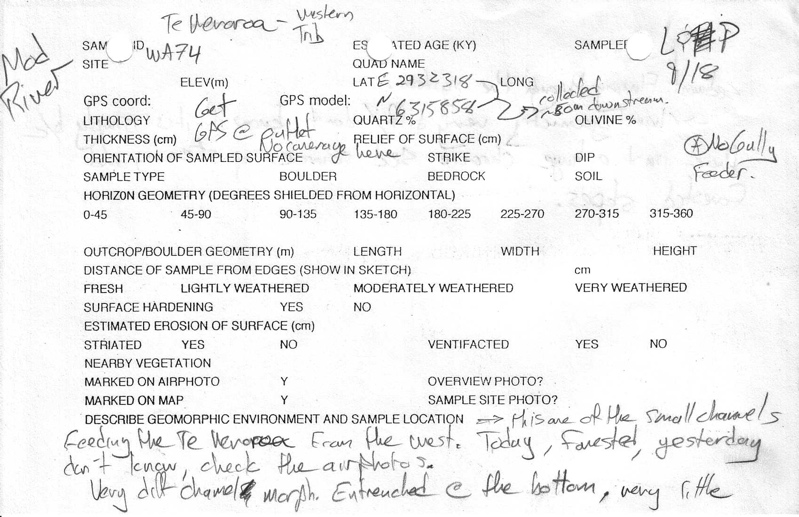 Te Weroroa - western Trib
Mad River
SAM ID WA74 ES ATED AGE (KY) SAMPLE L P
SITE QUAD NAME 9/18
ELEV(m) LAT E 2932318 LONG
GPS coord: Get GPS model: N 6315858 collected ~80m downstream.
LITHOLOGY QUARTZ % OLIVINE %
THICKNESS (cm) GPS @ outlet RELIEF OF SURFACE (cm)
No coverage here
ORIENTATION OF SAMPLED SURFACE STRIKE DIP
SAMPLE TYPE BOULDER BEDROCK SOIL
No Gully Feeder.
HORIZON GEOMETRY (DEGREES SHIELDED FROM HORIZONTAL)
0-45 45-90 90-135 135-180 180-225 225-270 270-315 315-360
OUTCROP/BOULDER GEOMETRY (m) LENGTH WIDTH HEIGHT
DISTANCE OF SAMPLE FROM EDGES (SHOW IN SKETCH) cm
FRESH LIGHTLY WEATHERED MODERATELY WEATHERED VERY WEATHERED
SURFACE HARDENING YES NO
ESTIMATED EROSION OF SURFACE (cm)
STRIATED YES NO VENTIFACTED YES NO
NEARBY VEGETATION
MARKED ON AIRPHOTO Y OVERVIEW PHOTO?
MARKED ON MAP Y SAMPLE SITE PHOTO?
DESCRIBE GEOMORPHIC ENVIRONMENT AND SAMPLE LOCATION => this one of the small channels
Feeding the Te Weroroa From the west. Today, forested, yesterday
don't know, check the airphotos.
Very diff channel morph. Entrenched @ the bottom, very little